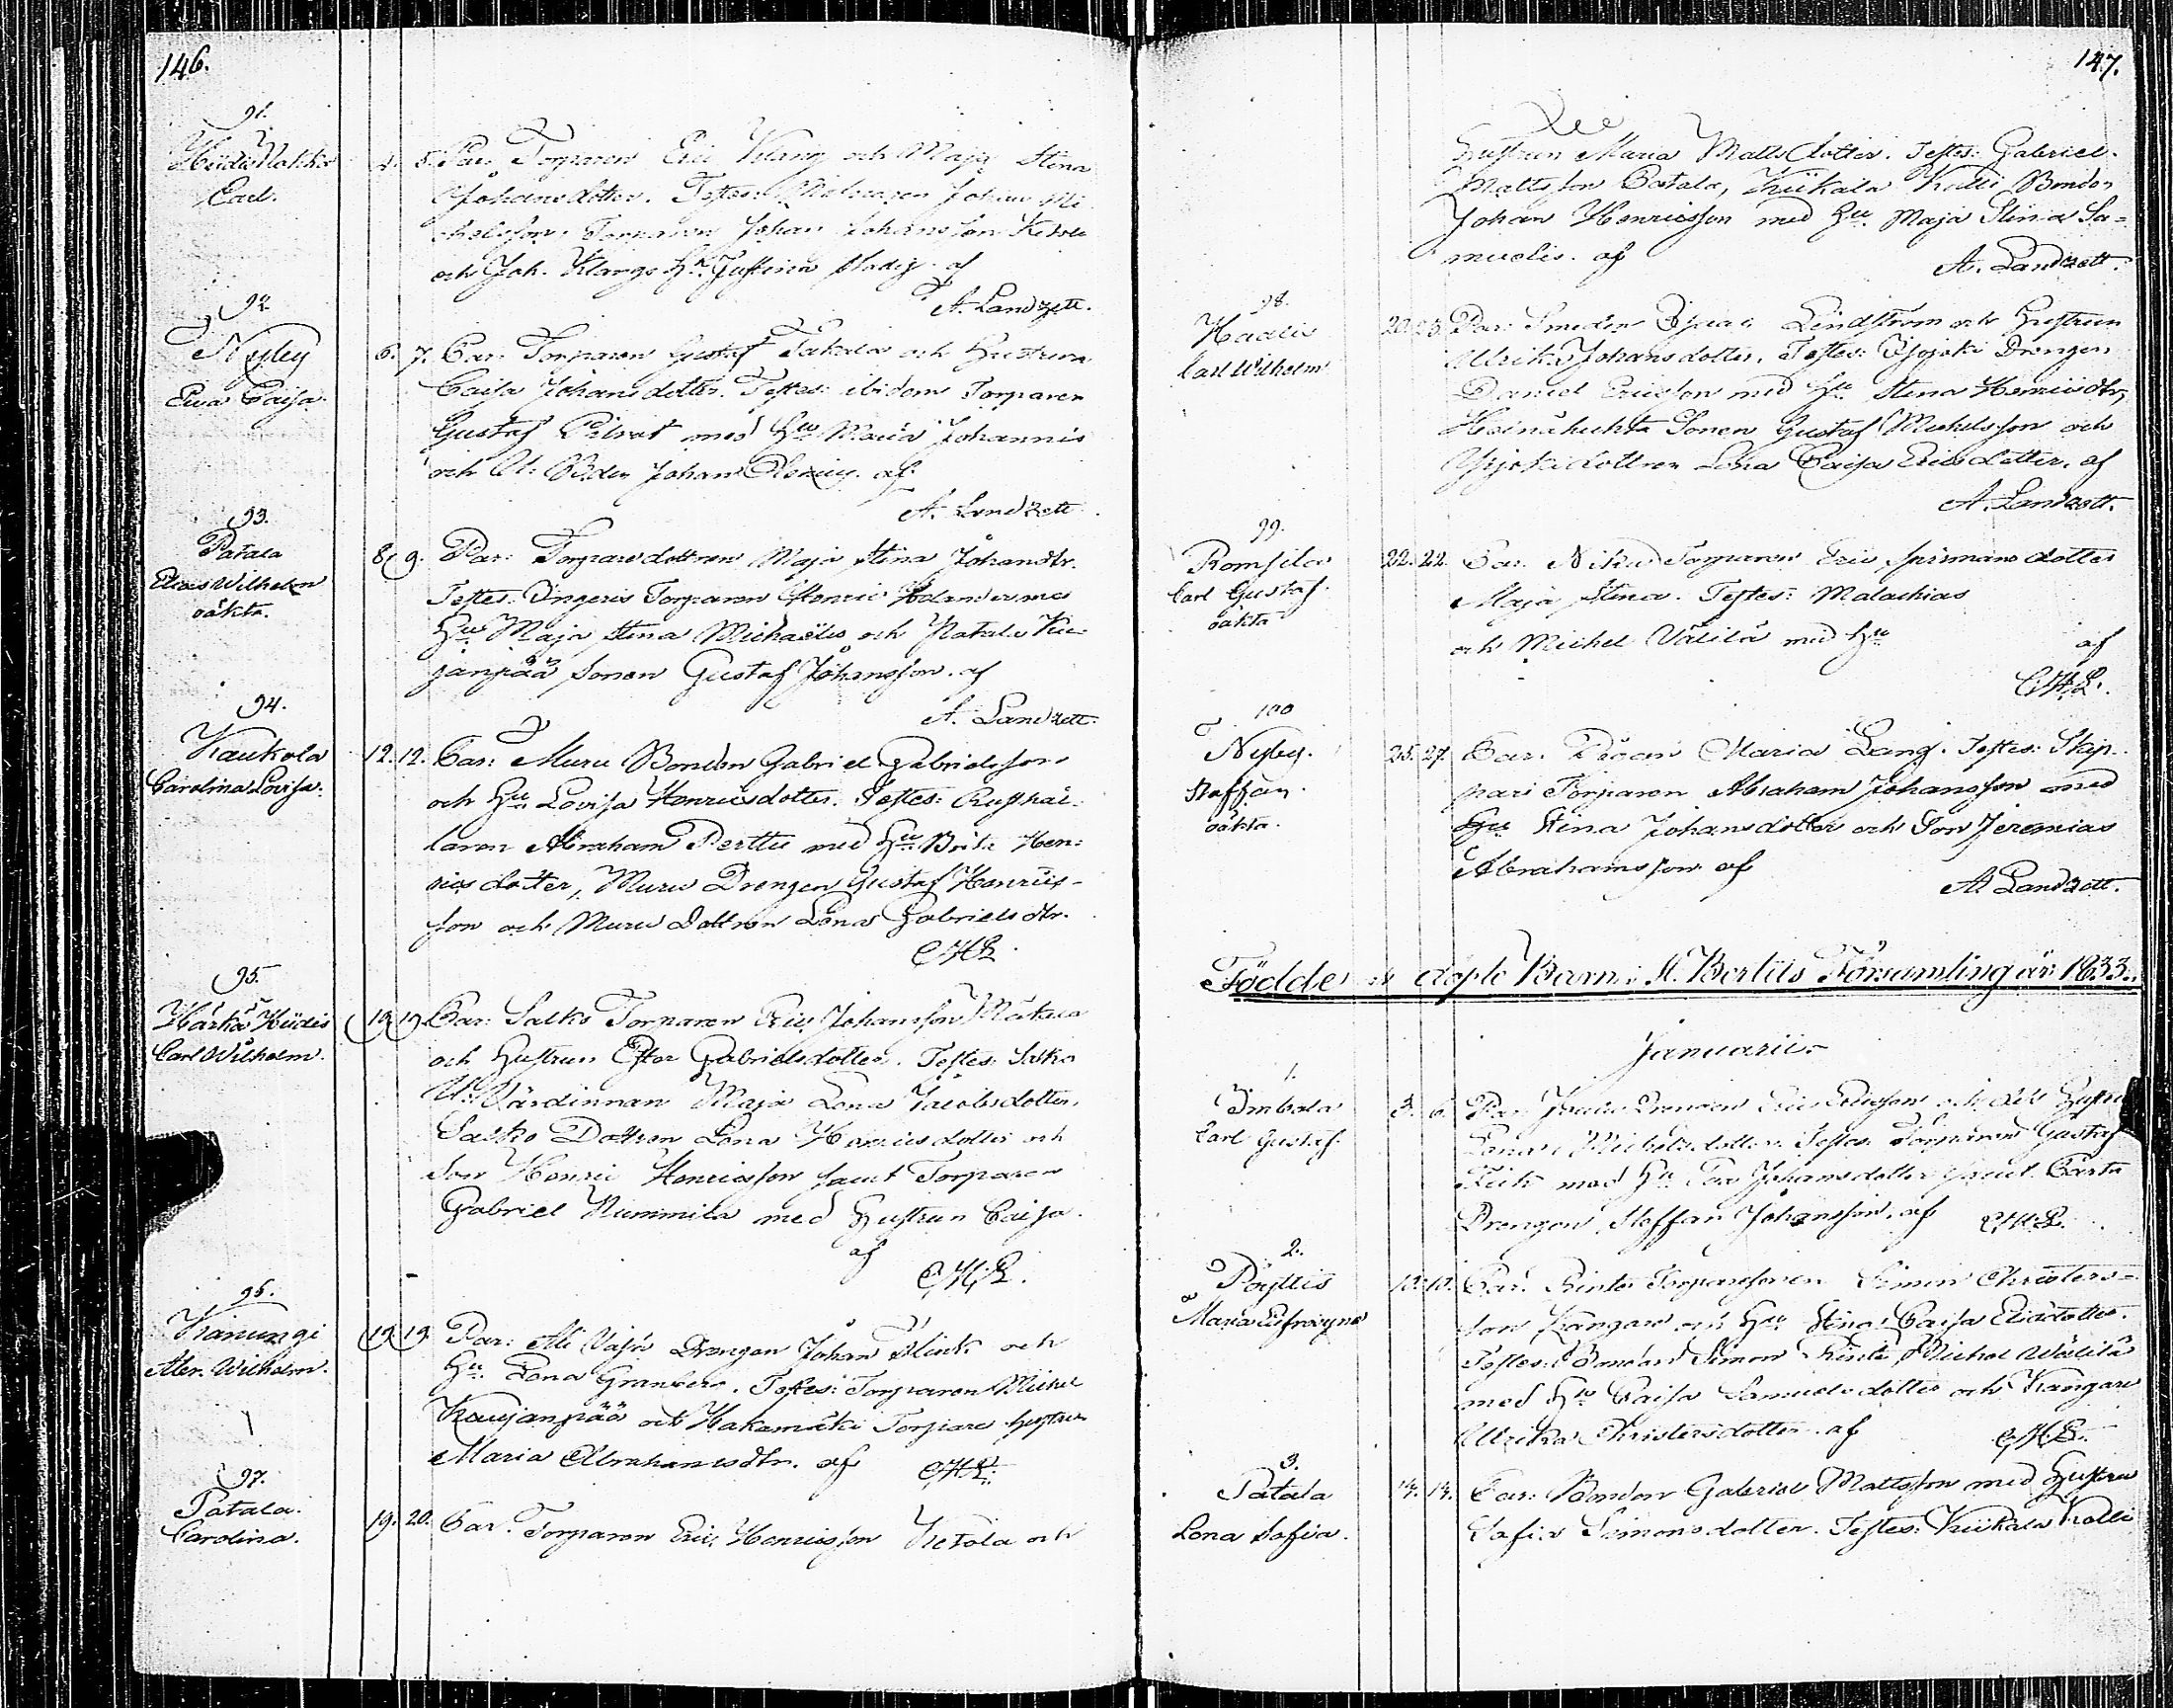 146.
91.
Carl.
4. 5. Par: Torparen Eric Klang och Maja Stina
Johansdotter. Testes: Johan Mi
chelsson, Torparen Johan Johansson Ketola
och Joh. Klangs Hu Justina Stadig. af
A. Landzett.
92.
Nyby
Eva Caisa
6. 7. Par: Torparen Gustaf Takala och Hustrun
Caisa Johansdotter. Testes: ibidem Torparen
Gustaf med Hu Maria Johannis
och Johan af
A. Landzett
93.
Patala
Elias Wilhelm
oäkta.
8. 9. Par: Torparedottren Maja Stina Johansdtr.
Testes: Torparen Henric med
Hu Maja Stina Michaëlis och Patala Ku
janpää Sonen Gustaf Johansson. af
A. Landzett.
94.
Kaukola
Carolina Lovisa.
12. 12. Par: Muru Bonden Gabriel Gabrielsson
och Hu Lovisa Henricsdotter. Testes: Rusthål-
laren Abraham Perttu med Hu Brita Hen-
ricsdotter, Muru Drengen Gustaf Henrics-
son och Muru Dottren Lena Gabrielsdtr.
CHL.
95.
Härkä Hiidis
Carl Wilhelm.
19. 19. Par: Salko Torparen Eric Johansson Mäkela
och Hustrun Ester Gabrielsdotter. Testes: Salko
Wärdinnan Maja Lena Jacobsdotter,
Salko Dottren Lena Henricsdotter och
Son Henric Henricsson samt Torparen
Gabriel Nummila med Hustrun Caisa.
af
CHL.
96.
Kanungi
Alex. Wilhelm.
19. 19. Par: Ali Drengen Johan Flink och
Hu Lena Granberg. Testes: Torparen Michel
Kaujanpää och Hakamäki Torpare hustrun
Maria Abrahamsdtr. af CHL.
97.
Patala.
Carolina.
19. 20. Par: Torparen Eric Henricsson Ketola och
147.
Hustrun Maria Mattsdotter. Testes: Gabriel
Mattsson Patala, Kiikala Kalli Bonden
Johan Henricsson med Hu Maja Stina Sa=
muelis. af
A. Landzett.
98.
Kaalis
Carl Wilhelm
20. 25. Par: Smeden Isaac Lindström och Hustrun
Ulrika Johansdotter. Testes: Drengen
Daniel Ericsson med Hu Stina Henricsdtr,
Heinähuhta Sonen Gustaf Michelsson och
dottren Lena Caisa Ericsdotter. af
A. Landzett.
99.
Romsila
Carl Gustaf.
oäkta
22. 22. Par: Torparen Eric dotter
Maja Stina. Testes: Malachias
och Michel Välilä med Hu af
CHL.
100
Nyby.
Staffan.
oäkta.
25. 27. Par: Pigan Maria Lang. Testes: Skip-
pari Torparen Abraham Johansson med
Hu Stina Johansdotter och Son Jeremias
Abrahamsson af
A. Landzett.
Födde och döpte Barn i St. Bertils Församling år 1833.
Januarii.
1.
Carl Gustaf.
3. 6. Par: Drengen Eric Ericsson och dess Hustru
Lena Michelsdotter. Testes: Torparen Gustaf
med Hu Johansdotter samt
Drengen Staffan Johansson. af CHL.
2.
Pöytiis
Maria Eufrosyne
12. 12. Par: Rinte Torparesonen Simon Christers-
son Kangare och Hu Stina Caisa Eliædotter.
Testes: Bonden Simon Rinte, Michel Wälilä
med Hu Caisa Samuelsdotter och Kangare
Ulrika Christersdotter. af CHL.
3.
Patala
Lena Sofia.
14. 14. Par: Bonden Gabriel Mattsson med Hustru
Sofia Simonsdotter. Testes: Kiikala Kalli